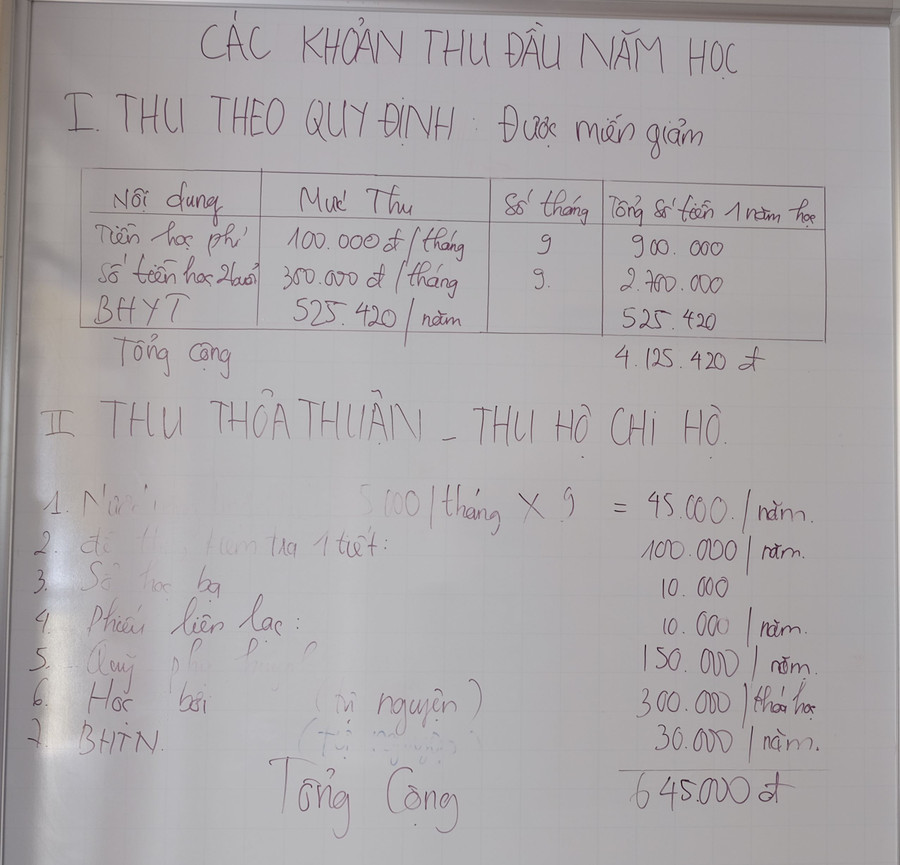 CÁC KHOẢN THU ĐẦU NĂM HỌC
I. THU THEO QUY ĐỊNH : Được miễn giảm
Nội dung Mức Thu Số tháng Tổng Số tiền 1 năm học
Tiền học phí 100.000đ/tháng 9 900.000
Số tiền học 2buổi 300.000 đ/tháng 9. 2.700.000
BHYT 525.420/năm 525.420
Tổng Cộng 4.125.420 đ
II THU THỎA THUẬN - THU HỘ CHI HỘ.
1. 5000/tháng X 9 = 45.000./năm.
2. tra 1 tiết: 100.000/năm.
3. Sổ học bạ 10.000
4. Phiếu liên lạc: 10.000/năm.
5. Quỹ 150.000/năm.
6. Học bơi (tự nguyện) 300.000/khóa học
7. BHTN. (tự nguyện) 30.000/năm.
Tổng Cộng 645.000 đ